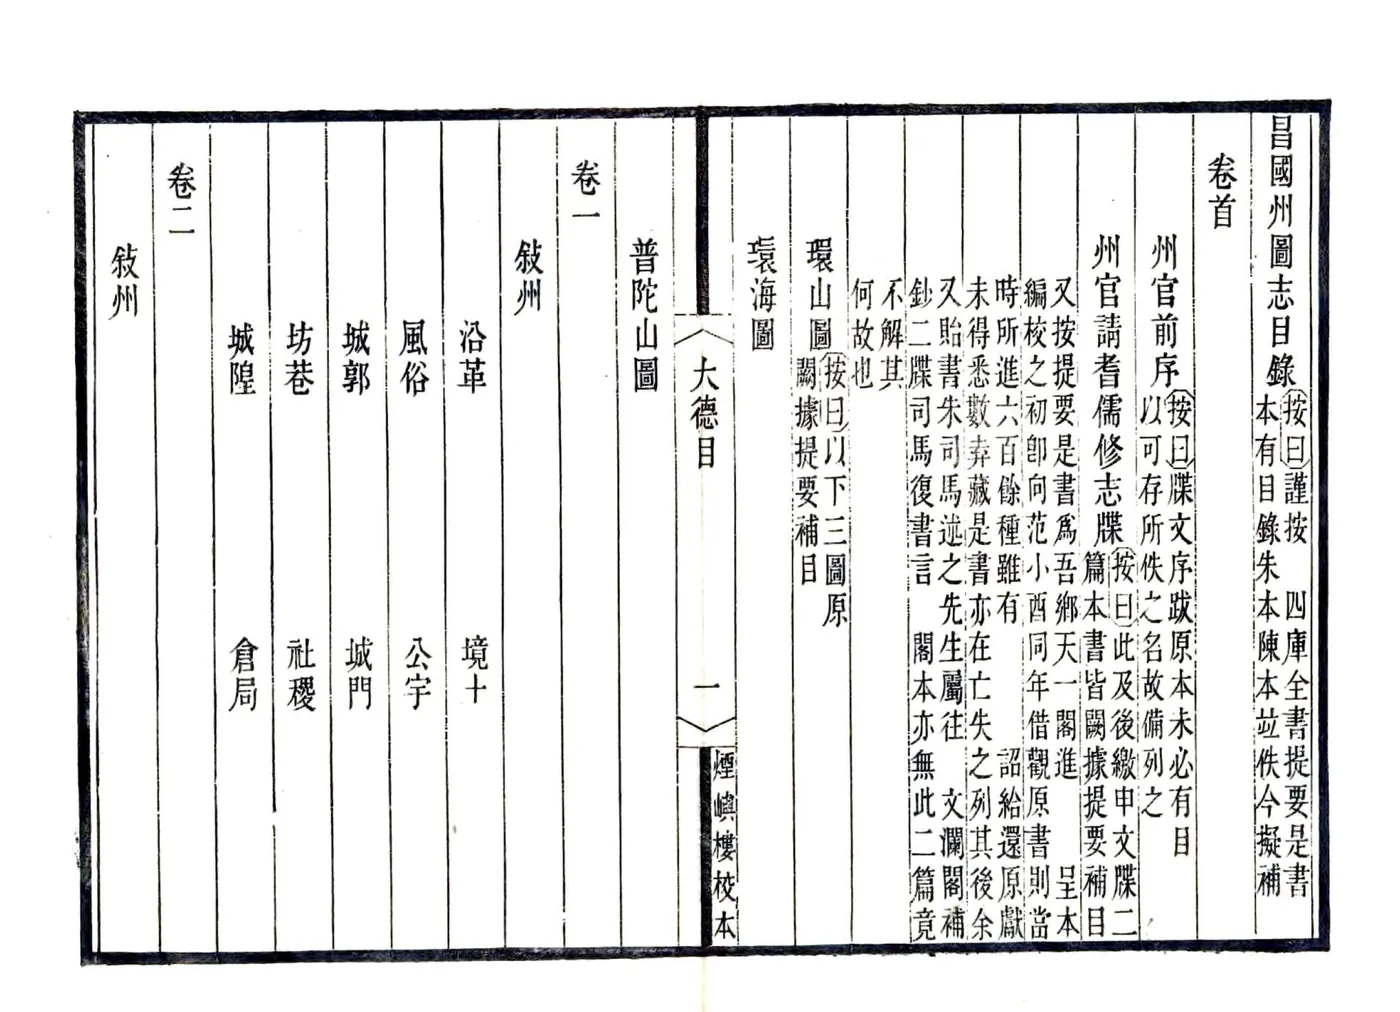 昌國州圖志目錄
按曰謹按　四庫全書提要是書
本有目錄朱本陳本竝佚今擬補
卷首
州官前序
按曰牒文序跋原本未必有目
以可存所佚之名故備列之
州官請耆儒修志牒
按曰此及後繳申文牒二
篇本書皆闕據提要補目
又按提要是書爲吾鄉天一閣進　呈本
編校之初卽向范小酉同年借觀原書則當
時所進六百餘種雖有　詔給還原獻
未得悉數弆藏是書亦在亡失之列其後余
又貽書朱司馬述之先生屬往　文瀾閣補
鈔二牒司馬復書言　閣本亦無此二篇竟
不解其
何故也
環山圖
按曰以下三圖原
闕據提要補目
環海圖
大德目　一　煙嶼樓校本
普陀山圖
卷一
敍州
沿革　境十
風俗　公宇
城郭　城門
坊巷　社稷
城隍　倉局
卷二
敍州